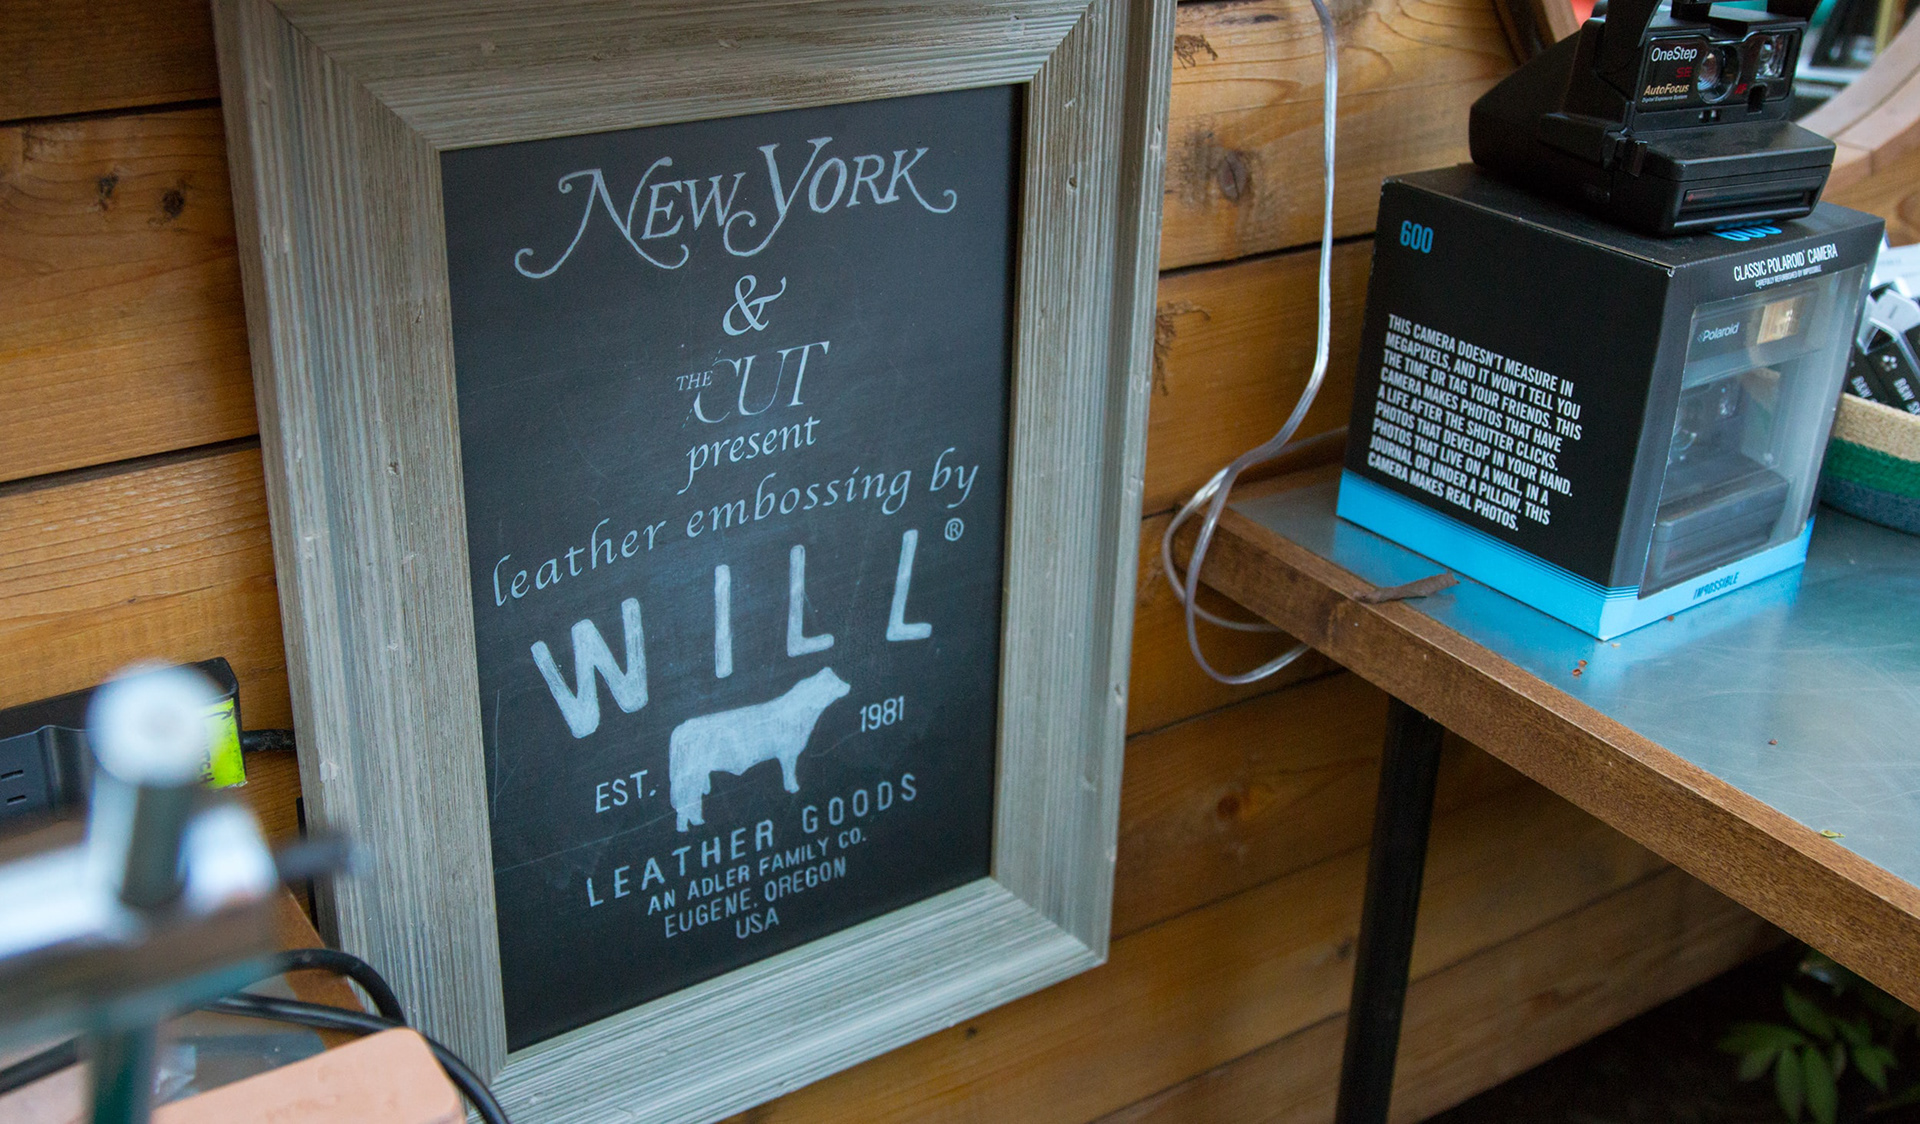 NEW YORK
&
THE CUT
present
leather embossing by
WILL®
EST. 1981
LEATHER GOODS
AN ADLER FAMILY CO.
EUGENE, OREGON
USA
OneStep
SE
AutoFocus
Digital Exposure System
600
600
CLASSIC POLAROID® CAMERA
CAREFULLY REFURBISHED BY IMPOSSIBLE
Polaroid
THIS CAMERA DOESN'T MEASURE IN
MEGAPIXELS, AND IT WON'T TELL YOU
THE TIME OR TAG YOUR FRIENDS. THIS
CAMERA MAKES PHOTOS THAT HAVE
A LIFE AFTER THE SHUTTER CLICKS.
PHOTOS THAT DEVELOP IN YOUR HAND.
PHOTOS THAT LIVE ON A WALL, IN A
JOURNAL OR UNDER A PILLOW. THIS
CAMERA MAKES REAL PHOTOS.
IMPOSSIBLE